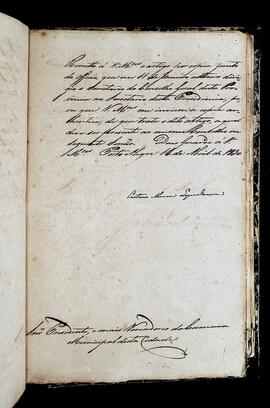 Remetto á V. M.ces o artigo por copia junto
do officio, que em 11 de Janeiro ultimo diri
gio o Secretario do Conselho Geral desta Pro
vincia ao Secretario desta Presidencia, pa
ra que V. M.ces
de que trata o dito artigo, a qual
deve ser presente ao mesmo Conselho na
seguinte Sessão. Deos Guarde a V.
M.ces Porto Alegre 16 de Abril de 1830
Caetano Maria Lopes Gama
Snr.es Presidente, e mais Vereadores da Camara
Municipal desta Cidade.